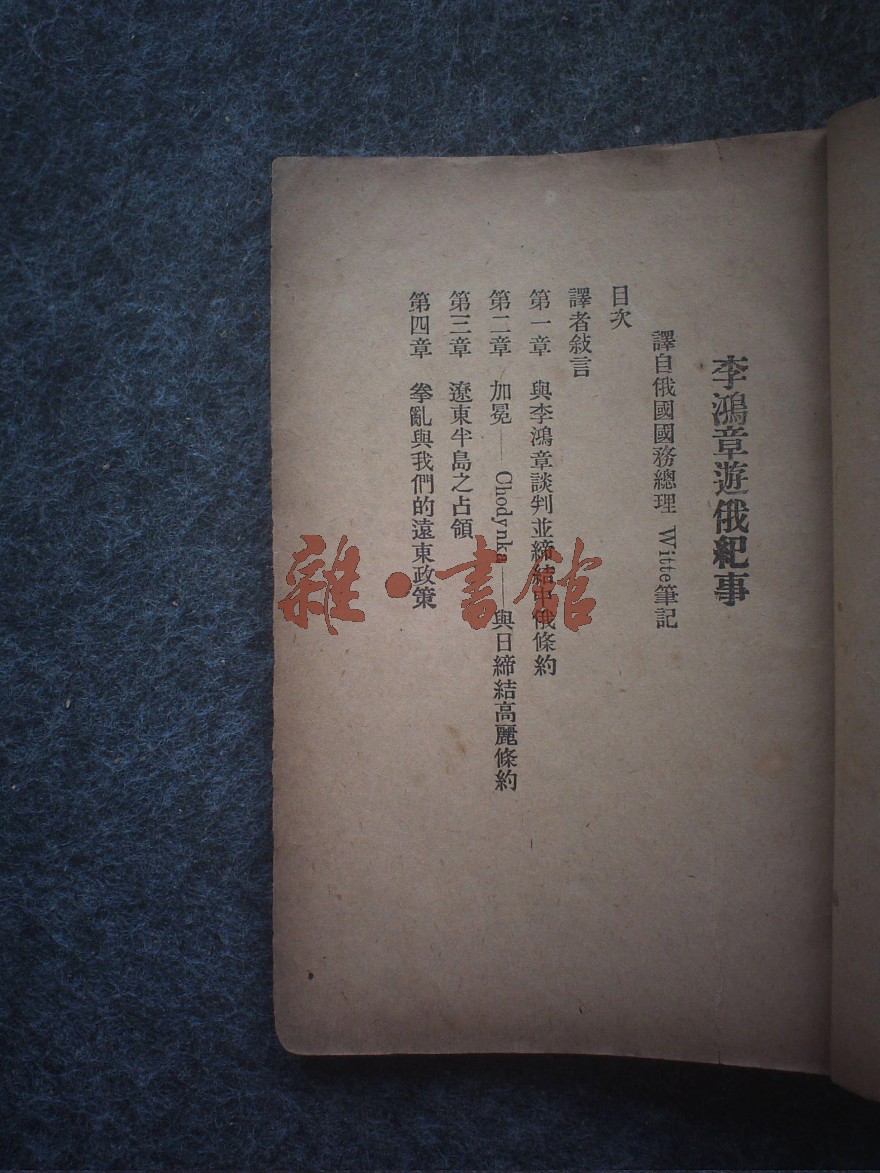 李鴻章遊俄紀事
譯自俄國國務總理 Witte筆記
目次
譯者敍言
第一章 與李鴻章談判並締結中俄條約
第二章 加冕——Chodynka——與日締結高麗條約
第三章 遼東半島之占領
第四章 拳亂與我們的遠東政策
雜·書館